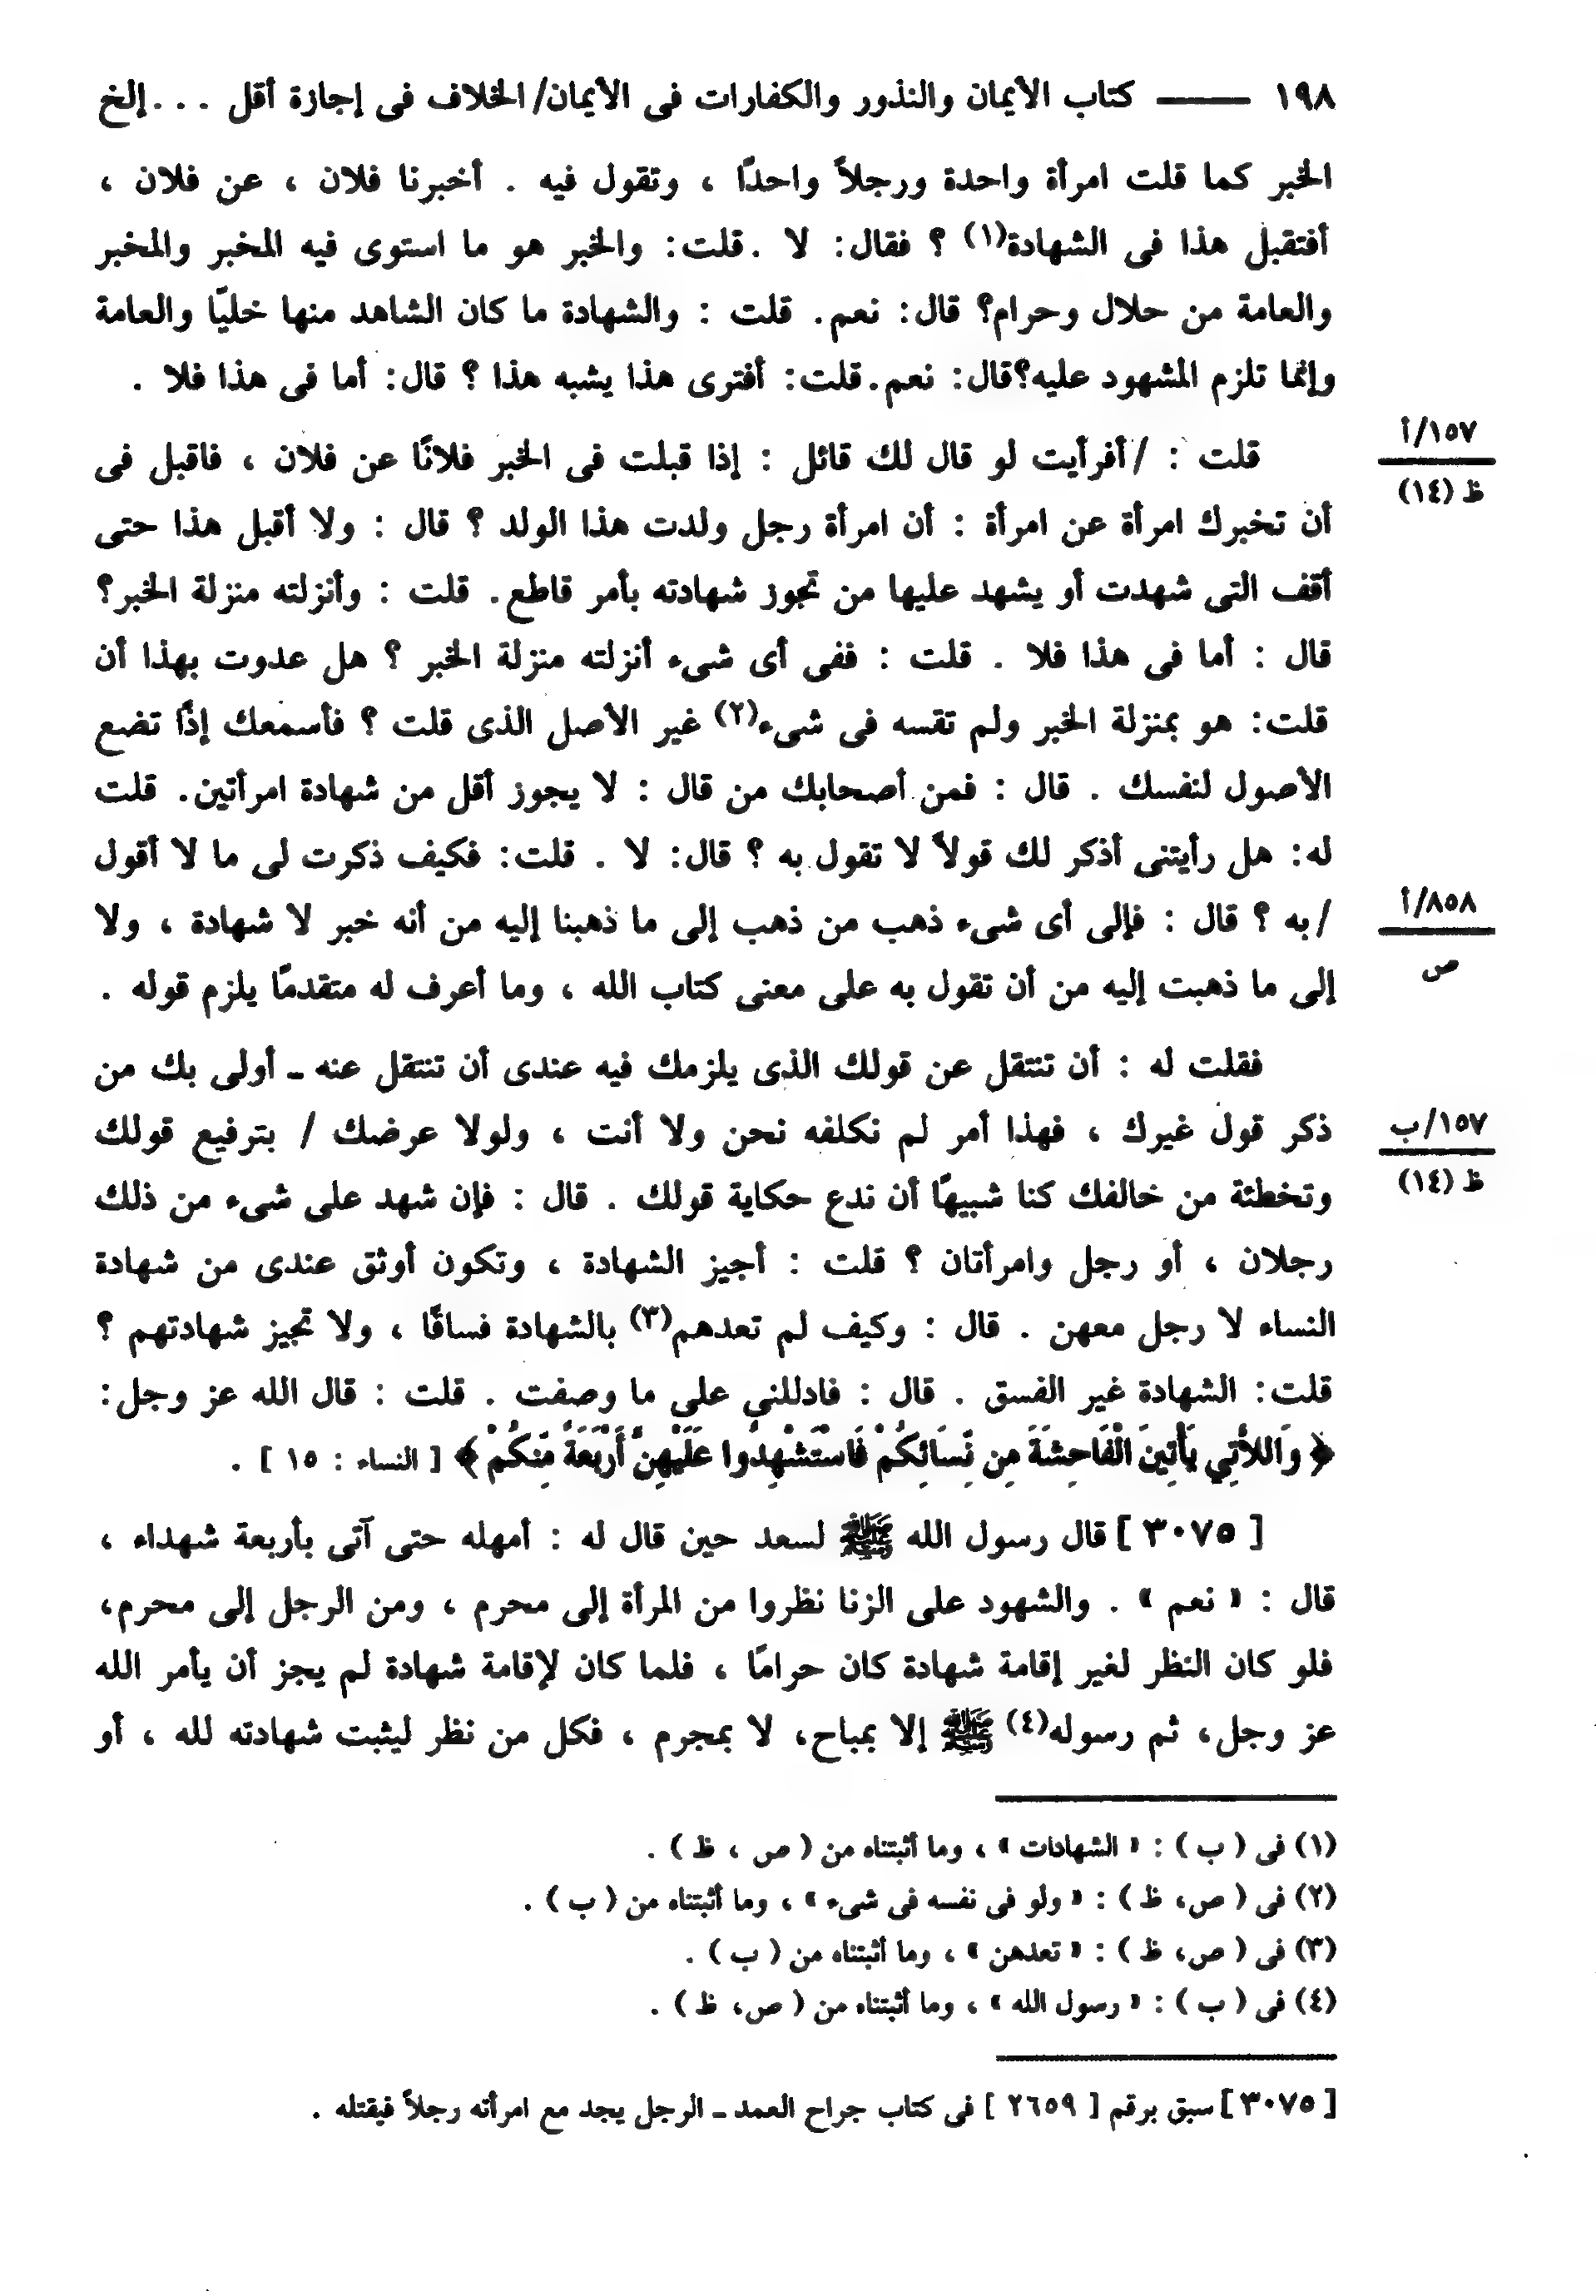 ١٩٨ ـــــ كتاب الأيمان والنذور والكفارات فى الأيمان/ الخلاف فى إجازة أقل . . . إلخ
الخبر كما قلت امرأة واحدة ورجلاً واحدًا ، وتقول فيه . أخبرنا فلان ، عن فلان ،
أفتقبل هذا فى الشهادة(١) ؟ فقال: لا . قلت: والخبر هو ما استوى فيه المخبر والمخبر
والعامة من حلال وحرام؟ قال: نعم. قلت : والشهادة ما كان الشاهد منها خليًا والعامة
وإنما تلزم المشهود عليه؟ قال: نعم. قلت: أفترى هذا يشبه هذا ؟ قال: أما فى هذا فلا .
قلت : / أفرأيت لو قال لك قائل : إذا قبلت فى الخبر فلانًا عن فلان ، فاقبل فى
١٥٧/أ
ظ (١٤)
أن تخبرك امرأة عن امرأة : أن امرأة رجل ولدت هذا الولد ؟ قال : ولا أقبل هذا حتى
أقف التى شهدت أو يشهد عليها من تجوز شهادته بأمر قاطع. قلت : وأنزلته منزلة الخبر؟
قال : أما فى هذا فلا . قلت : ففى أى شىء أنزلته منزلة الخبر ؟ هل عدوت بهذا أن
قلت: هو بمنزلة الخبر ولم تقسه فى شىء(٢) غير الأصل الذى قلت ؟ فأسمعك إذًا تضع
الأصول لنفسك . قال : فمن أصحابك من قال : لا يجوز أقل من شهادة امرأتين. قلت
له: هل رأيتنى أذكر لك قولاً لا تقول به ؟ قال: لا . قلت: فكيف ذكرت لى ما لا أقول
/ به ؟ قال : فإلى أى شىء ذهب من ذهب إلى ما ذهبنا إليه من أنه خبر لا شهادة ، ولا
٨٥٨/أ
ص
إلى ما ذهبت إليه من أن تقول به على معنى كتاب الله ، وما أعرف له متقدمًا يلزم قوله .
فقلت له : أن تنتقل عن قولك الذى يلزمك فيه عندى أن تنتقل عنه ـ أولى بك من
ذكر قول غيرك ، فهذا أمر لم نكلفه نحن ولا أنت ، ولولا عرضك / بترفيع قولك
١٥٧/ب
ظ (١٤)
وتخطئة من خالفك كنا شبيهًا أن ندع حكاية قولك . قال : فإن شهد على شىء من ذلك
رجلان ، أو رجل وامرأتان ؟ قلت : أجيز الشهادة ، وتكون أوثق عندى من شهادة
النساء لا رجل معهن . قال : وكيف لم تعدهم(٣) بالشهادة فساقًا ، ولا تجيز شهادتهم ؟
قلت: الشهادة غير الفسق . قال : فادللنى على ما وصفت . قلت : قال الله عز وجل:
﴿ وَاللَّاتِي يَأْتِينَ الْفَاحِشَةَ مِن نِّسَائِكُمْ فَاسْتَشْهِدُوا عَلَيْهِنَّ أَرْبَعَةً مِّنكُمْ ﴾ [ النساء : ١٥ ] .
[ ٣٠٧٥ ] قال رسول الله ﷺ لسعد حين قال له : أمهله حتى آتى بأربعة شهداء ،
قال : « نعم » . والشهود على الزنا نظروا من المرأة إلى محرم ، ومن الرجل إلى محرم،
فلو كان النظر لغير إقامة شهادة كان حرامًا ، فلما كان لإقامة شهادة لم يجز أن يأمر الله
عز وجل، ثم رسوله(٤) ﷺ إلا بمباح، لا بمجرم ، فكل من نظر ليثبت شهادته لله ، أو
(١) فى ( ب ) : « الشهادات » ، وما أثبتناه من ( ص ، ظ ) .
(٢) فى ( ص، ظ ) : « ولو فى نفسه فى شىء » ، وما أثبتناه من ( ب ) .
(٣) فى ( ص، ظ ) : « تعدهن » ، وما أثبتناه من ( ب ) .
(٤) فى ( ب ) : « رسول الله » ، وما أثبتناه من ( ص، ظ ) .
[ ٣٠٧٥ ] سبق برقم [ ٢٦٥٩ ] فى كتاب جراح العمد ـ الرجل يجد مع امرأته رجلاً فيقتله .